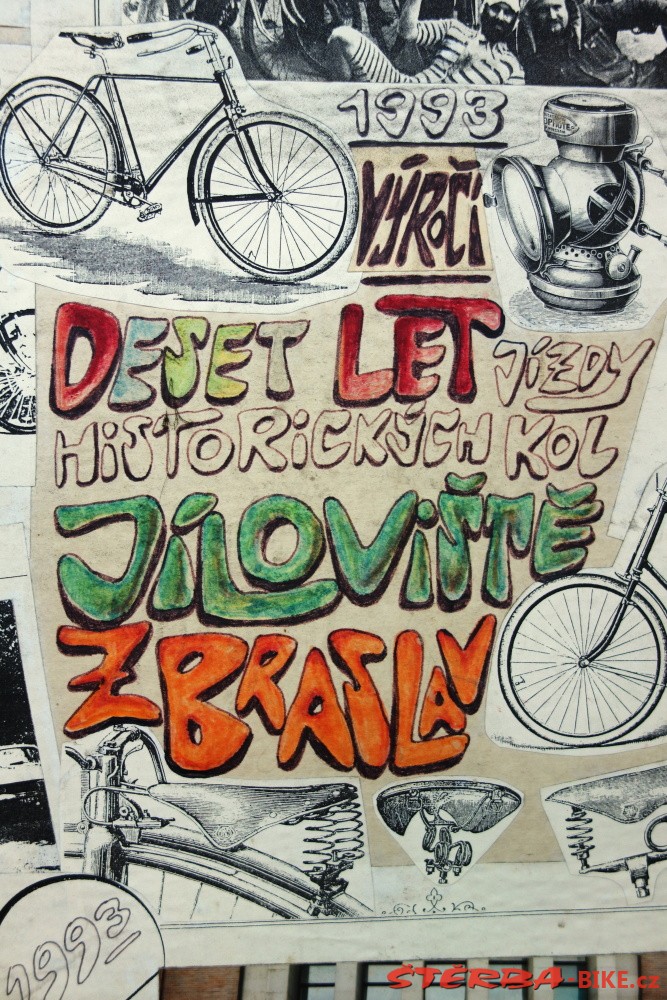 1993
VÝROČÍ
DESET LET JÍZDY
HISTORICKÝCH KOL
JÍLOVIŠTĚ
ZBRASLAV
1993
ŠTĚRBA-BIKE.cz